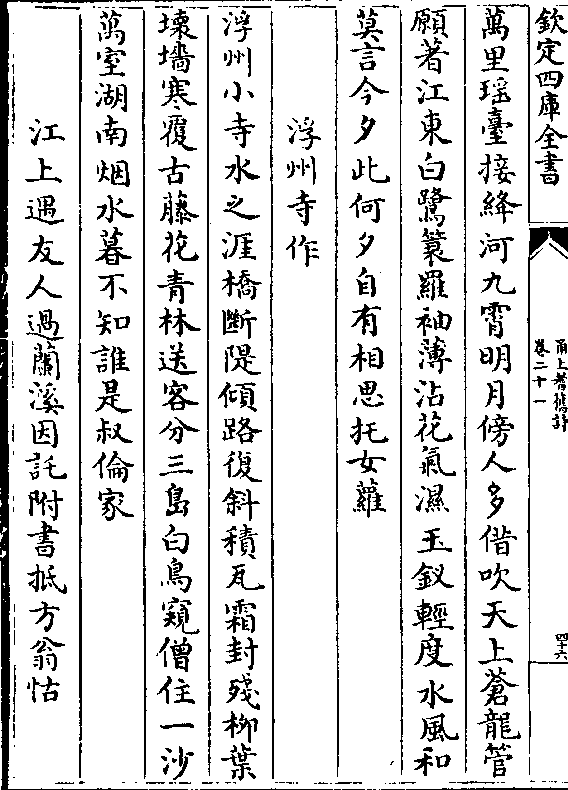 欽定四庫全書
甬上耆舊詩
卷二十一
四十六
萬里瑶臺接絳河九霄明月傍人多借吹天上蒼龍管
願著江東白鷺簑羅袖薄沾花氣濕玉釵輕度水風和
莫言今夕此何夕自有相思托女蘿
浮州寺作
浮州小寺水之涯橋斷隄傾路復斜積瓦霜封殘柳葉
壊墻寒覆古藤花青林送客分三島白鳥窺僧住一沙
萬室湖南烟水暮不知誰是叔倫家
江上遇友人過蘭溪因託附書抵方翁恬